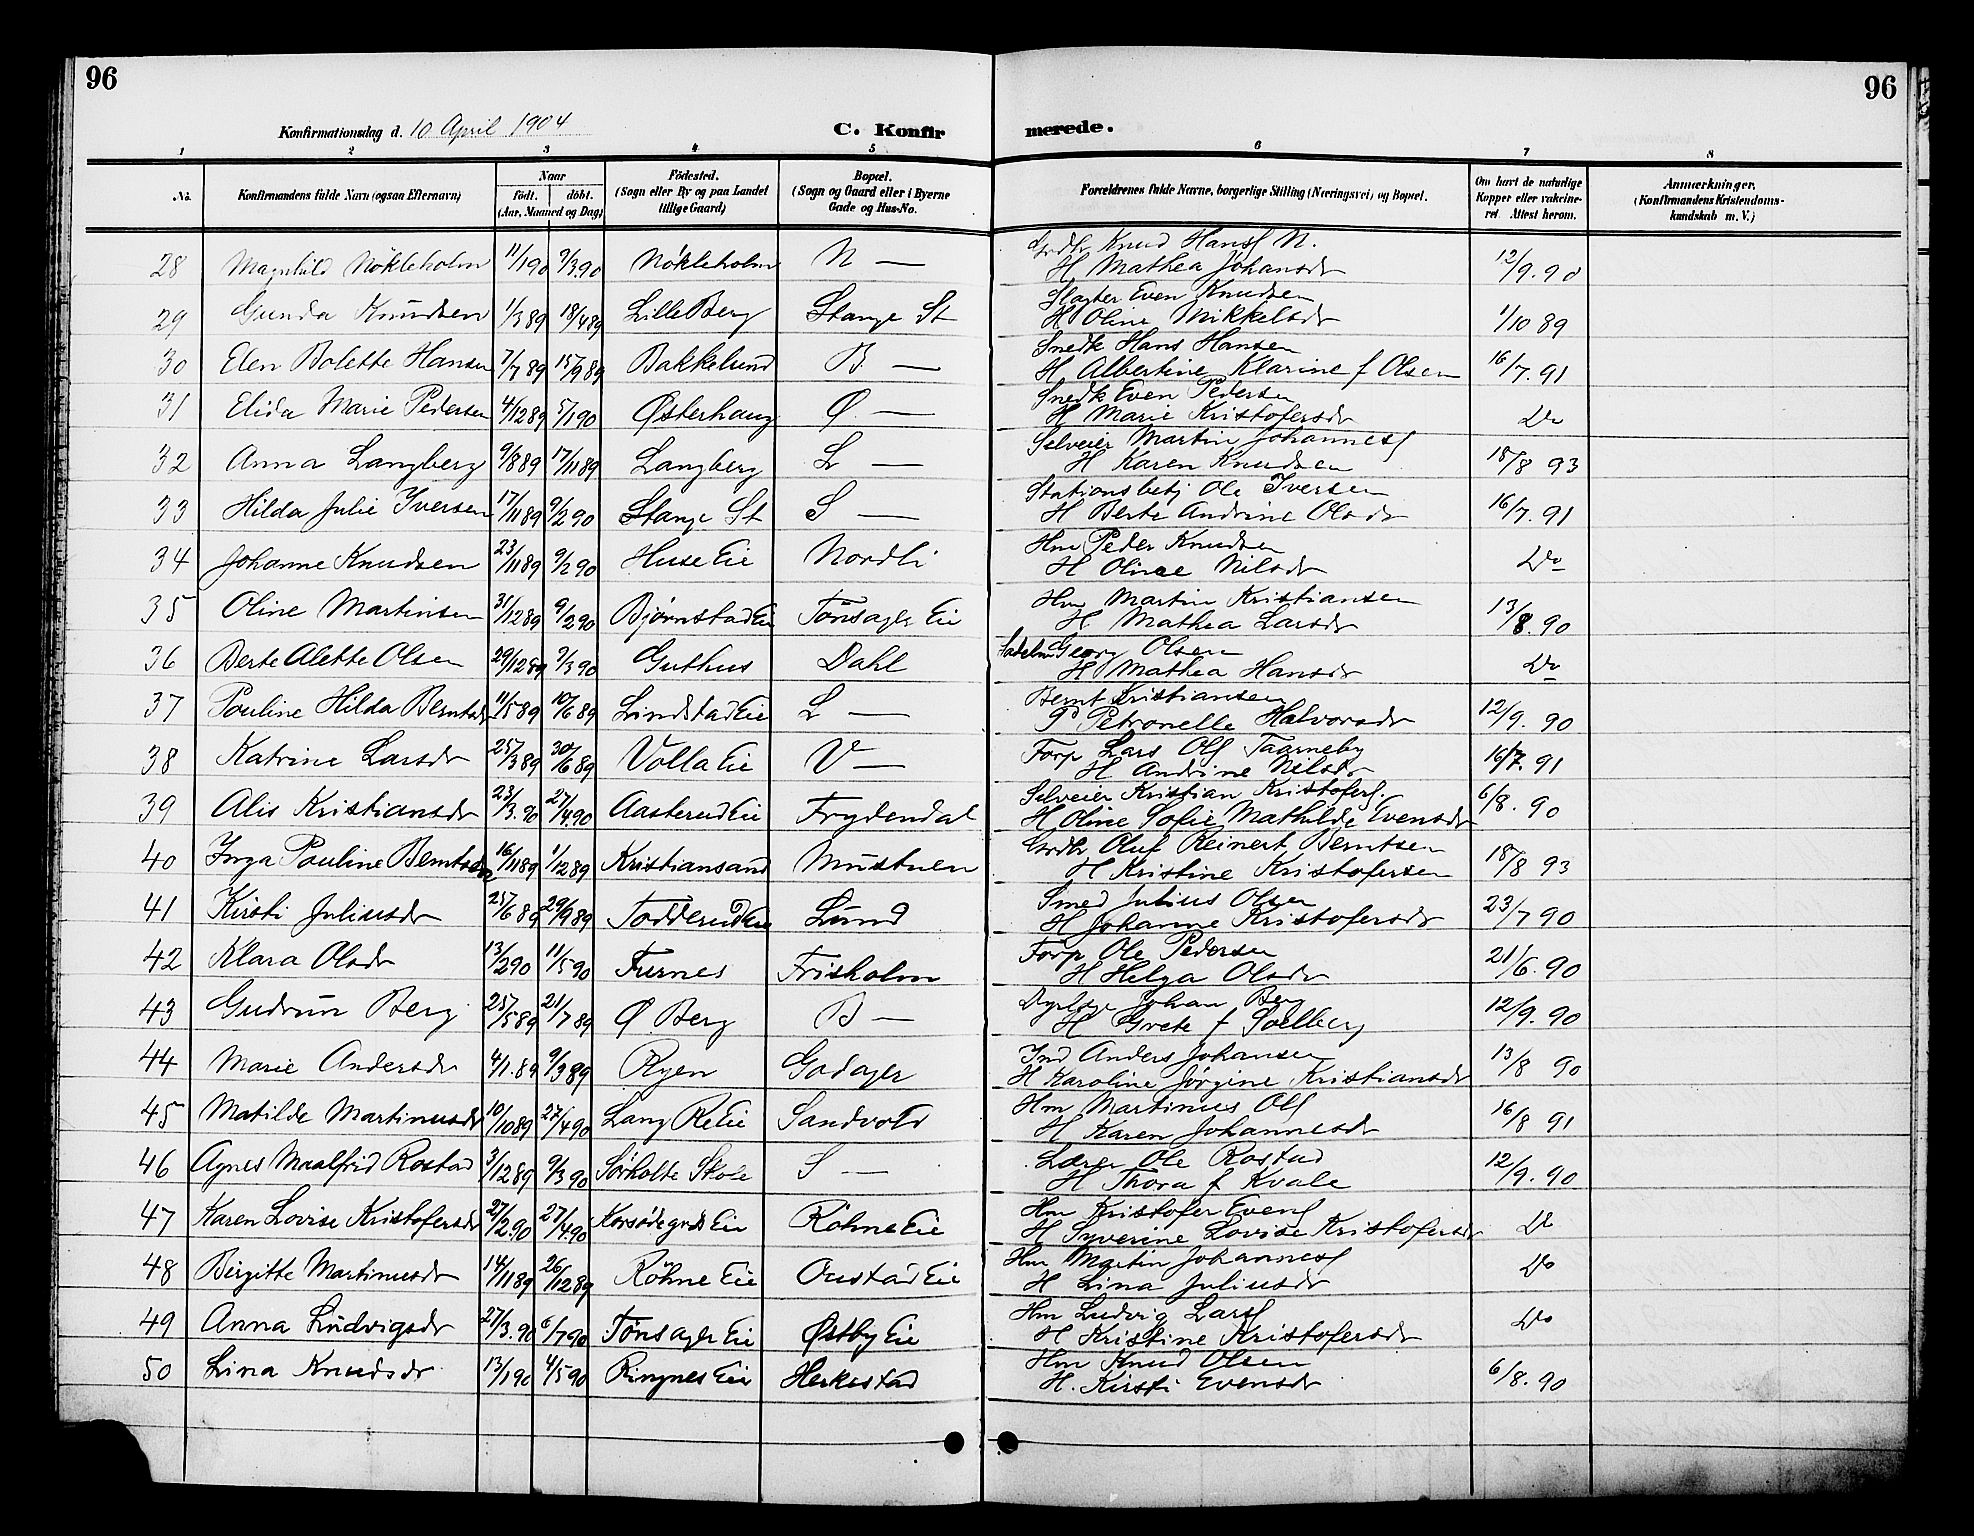 96
96
Konfirmationsdag d. 10 April 1904
C. Konfir
merede.
1 2 3 4 5 6 7 8
No.
Konfirmandens fulde Navn (ogsaa Efternavn)
Naar
Födt. döbt.
(Aar, Maaned og Dag)
Födested.
(Sogn eller By og paa Landet
tillige Gaard)
Bopæl.
(Sogn og Gaard eller i Byerne
Gade og Hus-No.
Forældrenes fulde Navne, borgerlige Stilling (Næringsvei) og Bopæl.
Om havt de naturlige
Kopper eller vakcine-
ret. Attest herom.
Anmærkninger,
(Konfirmandens Kristendoms-
kundskab m. V.)
28 Magnhild Nökleholm 11/1 90 9/3.90 Nökleholm N — Grdbr Knud Hansf N.
H Mathea Johansdr 12/9.90
29 Gunda Knudsen 1/3 89 18/4 89 Lille Berg Stange St Slagter Even Knudsen
H Oline Mikkelsdr 1/10 89
30 Elen Bolette Hansen 7/7 89 15/9 89 Bakkelund B. — Snedk Hans Hansen
H Albertine Klarine f Olsen 16/7.91
31 Elida Marie Pedersen 4/12 89 5/1 90 Østerhaug Ø. — Snedk Even Pedersen
H Marie Kristofersdr Do
32 Anna Langberg 9/8 89 17/11 89 Langberg L — Selveier Martin Johannesf
H Karen Knudsen 18/8 93
33 Hilda Julie Iversen 17/11 89 9/2 90 Stange St S — Stationsbetj Ole Iversen
H Berte Andrine Olsdr 16/7.91
34 Johanne Knudsen 23/11 89 9/2 90 Huse Eie Nordli Hm Peder Knudsen
H Oline Nilsdr Do
35 Oline Martinsen 31/12 89 9/2 90 Bjørnstad Eie Tønsager Eie Hm Martin Kristiansen
H Mathea Larsdr 13/8.90
36 Berte Alette Olsen 29/12 89 9/3 90 Guthus Dahl Georg Olsen
H Mathea Hansdr Do
37 Pouline Hilda Berntsdr 11/5 89 10/6 89 Lindstad Eie L — Bernt Kristiansen
P Petronelle Halvorsdr 12/9.90
38 Katrine Larsdr 25/3 89 30/6 89 Volla Eie V — Forp Lars Olf Taarneby
H Andrine Nilsdr 16/7.91
39 Alis Kristiansdr 23/3.90 27/4.90 Aasterud Eie Frydendal Selveier Kristian Kristofersf.
H Oline Sofie Mathilde Evensdr 6/8.90
40 Inga Pouline Berntsen 16/11 89 1/12 89 Kristiansand Mustuen Grdbr Oluf Reinert Berntsen
H Kristine Kristofersen 18/8 93
41 Kirsti Juliusdr 25/6 89 29/9 89 Todderud Eie Lund Smed Julius Olsen
H Johanne Kristofersdr 23/7 90
42 Klara Olsdr 13/2 90 11/5 90 Furnes Frisholm Forp Ole Pedersen
H Helga Olsdr 21/6.90
43 Gudrun Berg 25/5 89 21/7 89 Ø. Berg B — Dyrlæge Johan Berg
H Grete f Solberg 12/9.90
44 Marie Andersdr 4/1.89 9/3 89 Ryen Godager Ind Anders Johansen
H Karoline Jørgine Kristiansdr 13/8 90
45 Matilde Martinusdr 10/10 89 27/4 90 Lang Re Eie Sandvold Hm Martinus Olf
H Karen Johannesdr 16/8 91
46 Agnes Maalfrid Rostad 3/12 89 9/3 90 Sørholte Skole S — Lærer Ole Rostad
H Thora f Kvale 12/9.90
47 Karen Lovise Kristofersdr 27/2.90 27/4.90 Korsødegrds Eie Röhne Eie Hm Kristofer Evenf
H Syverine Lovise Kristofersdr Do
48 Birgitte Martinusdr 14/11 89 26/12 89 Röhne Eie Oustad Eie Hm Martin Johannesf
H Lina Juliusdr Do
49 Anna Ludvigsdr 27/3.90 6/7 90 Tönsager Eie Østby Eie Hm Ludvig Larsf
H Kristine Kristofersdr Do
50 Lina Knudsdr 13/1 90 4/5 90 Ringnes Eie Herkestad Hm Knud Olsen
H. Kirsti Evensdr 6/8.90